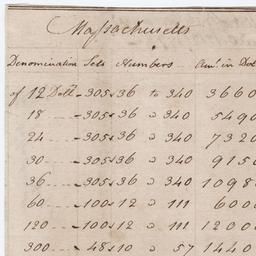 Massachusetts
Denomination Sets Numbers Amt. in Doll
of 12 Doll - 305 s 36 to 340 3660
18 - 305 s 36 a 340 5490
24 - 305 s 36 a 340 7320
30 - 305 s 36 a 340 9150
36 - 305 s 36 a 340 1098
60 - 100 s 12 a 111 6000
120 - 100 s 12 a 111 12000
300 - 48 s 10 a 57 1440